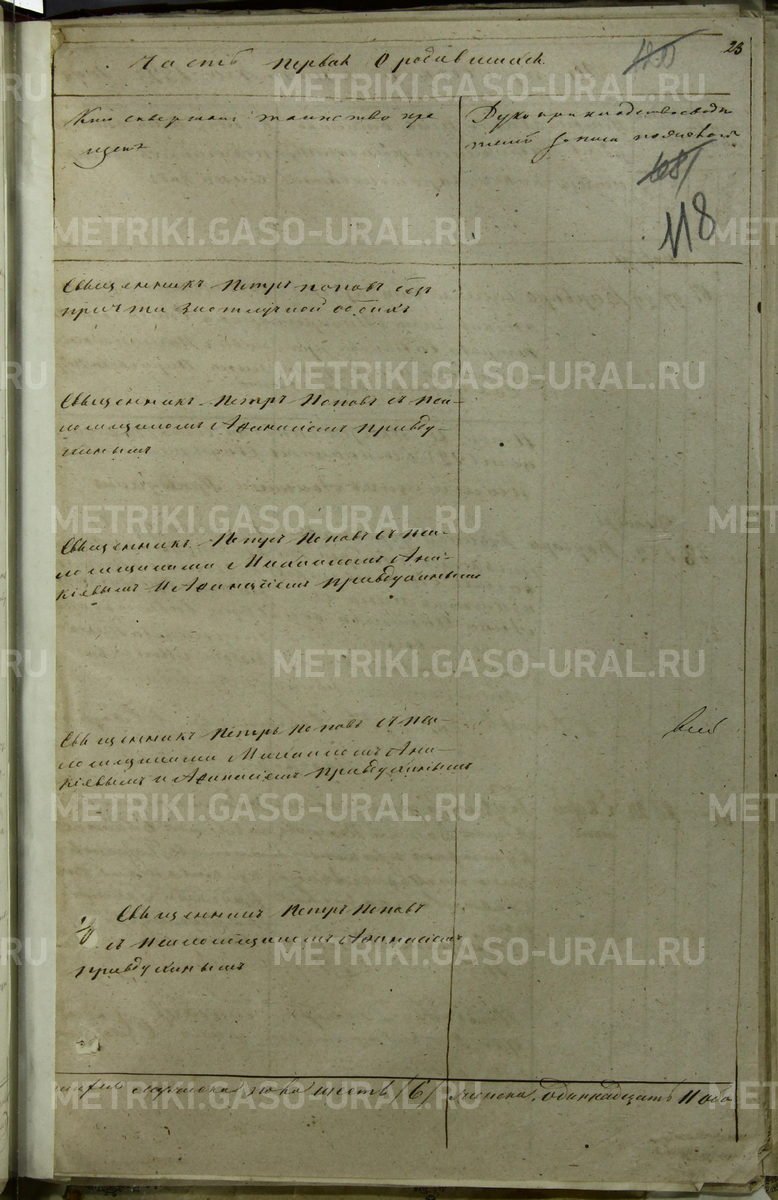 Часть первая О родившихся
23
Кто совершал таинство кре
щенія
Рукоприкладство свиде
телей записи
118
Священникъ Петръ Поповъ безъ
причта
Священникъ Петръ Поповъ съ пса-
ломщикомъ Афанасіемъ Правду-
хинымъ
Священникъ Петръ Поповъ съ пса-
ломщиками Михаиломъ Ана-
кіевымъ и Афанасіемъ Правдухинымъ
Священникъ Петръ Поповъ съ пса-
ломщиками Михаиломъ Ана-
кіевымъ и Афанасіемъ Правдухинымъ
Священникъ Петръ Поповъ
съ псаломщикомъ Афанасіемъ
Правдухинымъ
мужеска пола шесть /6/ женска одиннадцать 11 обо
METRIKI.GASO-URAL.RU